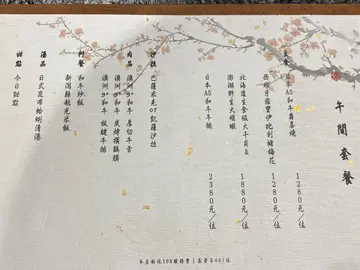 午間套餐
日本A5和牛壽喜燒 1280元/位
西班牙國寶伊比利豬梅花 1280元/位
北海道生食級大干貝&
澎湖野生大明蝦 1880元/位
日本A5和牛牛排 2380元/位
沙拉 巴薩米克or凱薩沙拉
肉品 澳洲9+和牛 厚切牛舌
澳洲9+和牛 炭烤橫膈膜
澳洲9+和牛 板腱牛排
附餐 和牛炒飯
新瀉縣越光米飯
湯品 日式昆布蛤蜊清湯
甜點 今日甜點
本店酌收10%服務費|茶資$40/位